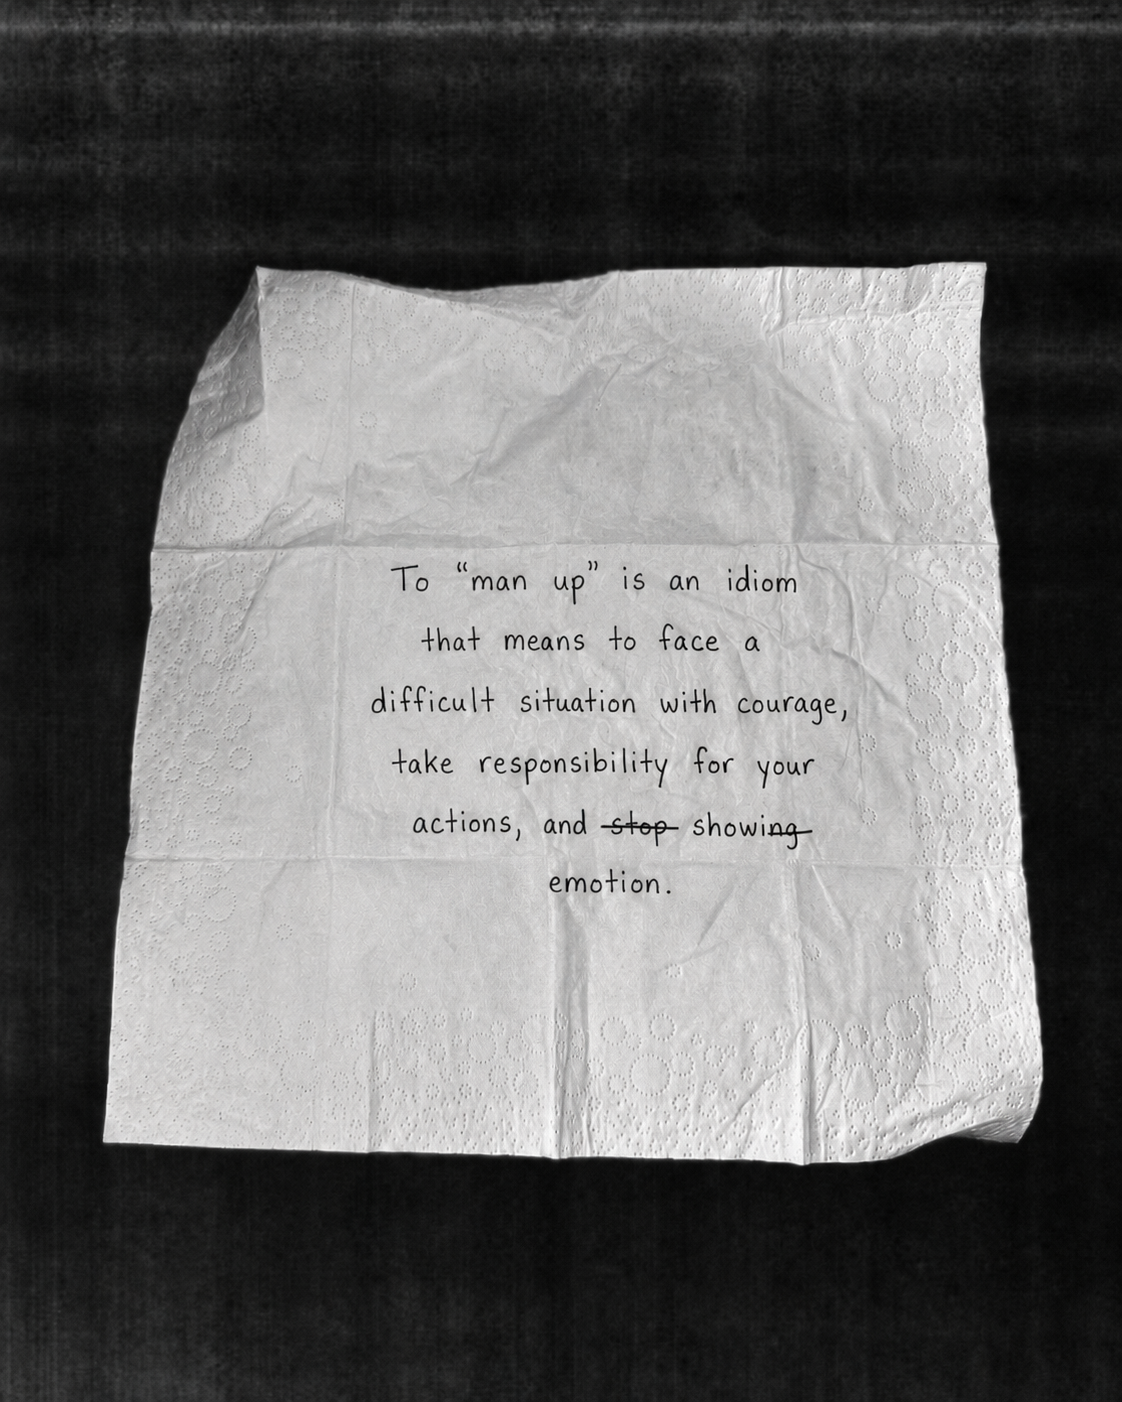 To “man up” is an idiom
that means to face a
difficult situation with courage,
take responsibility for your
actions, and ~~stop~~ show~~ing~~
emotion.